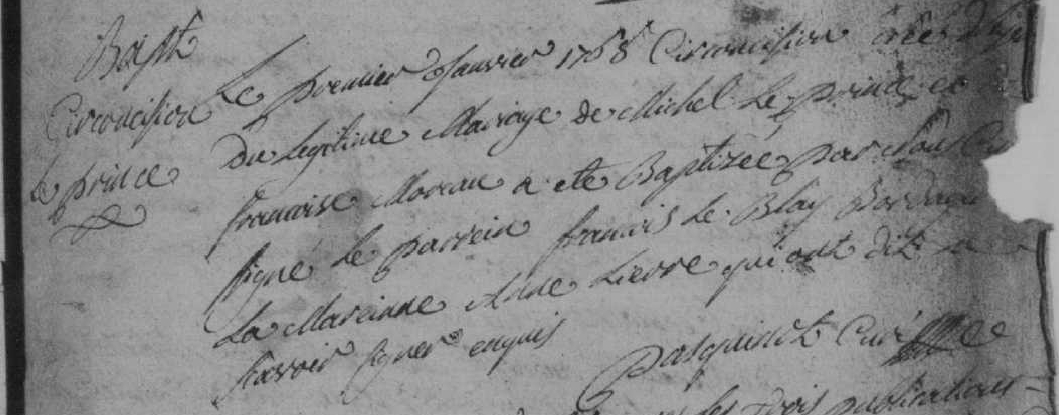 Bapt
Circoncision
Le prince
Le premier Janvier 1768 Circoncision née d'hier
Du Legitime Mariage de Michel Le prince et
francoise Moreau a ete Baptizée par Nous Curé
signé le parrein francois Le Blay
La Mareinne Anne Lievre qui ont dit ne
scavoir signer enquis
Pasquinot Curé
les trois publications